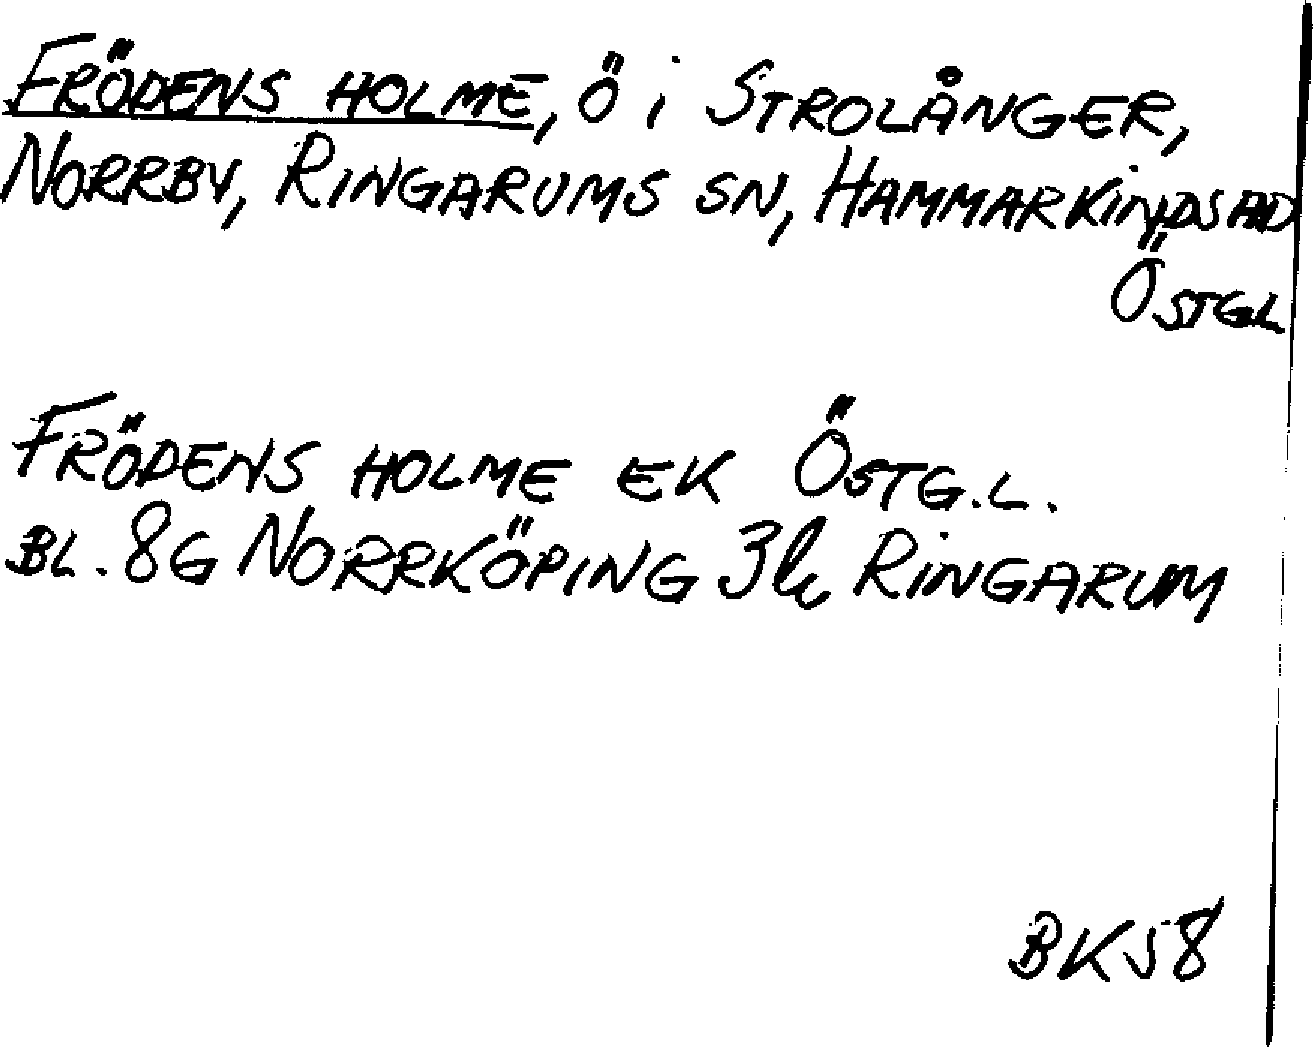 FRÖDENS HOLME, Ö i STROLÅNGER,
NORRBY, RINGARUMS SN, HAMMARKINDS HD
ÖSTGL
FRÖDENS HOLME EK ÖSTG.L.
BL. 8G NORRKÖPING 3h RINGARUM
BK58